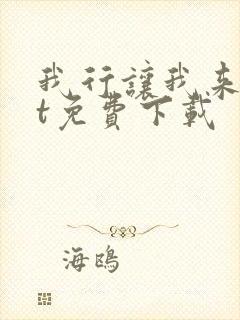 我行讓我來
t免費下載
海鴎